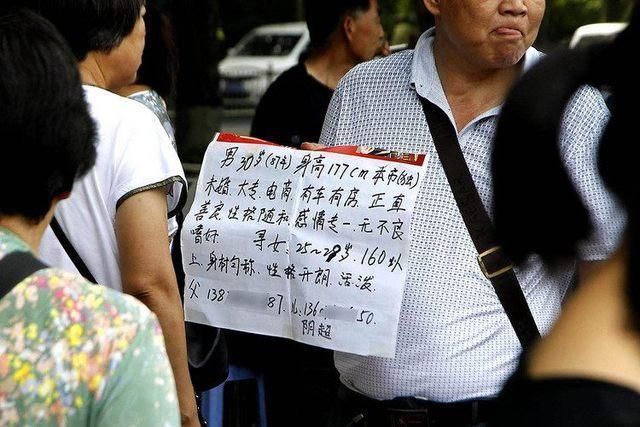 男30岁(87年)身高177cm 本市(户口)
未婚、大专、电商、有车有房、正直
善良、性格随和、感情专一、无不良
嗜好. 寻女: 25~29岁. 160以
上、身材匀称、性格开朗、活泼.
父138 87. 136 50.
阴超